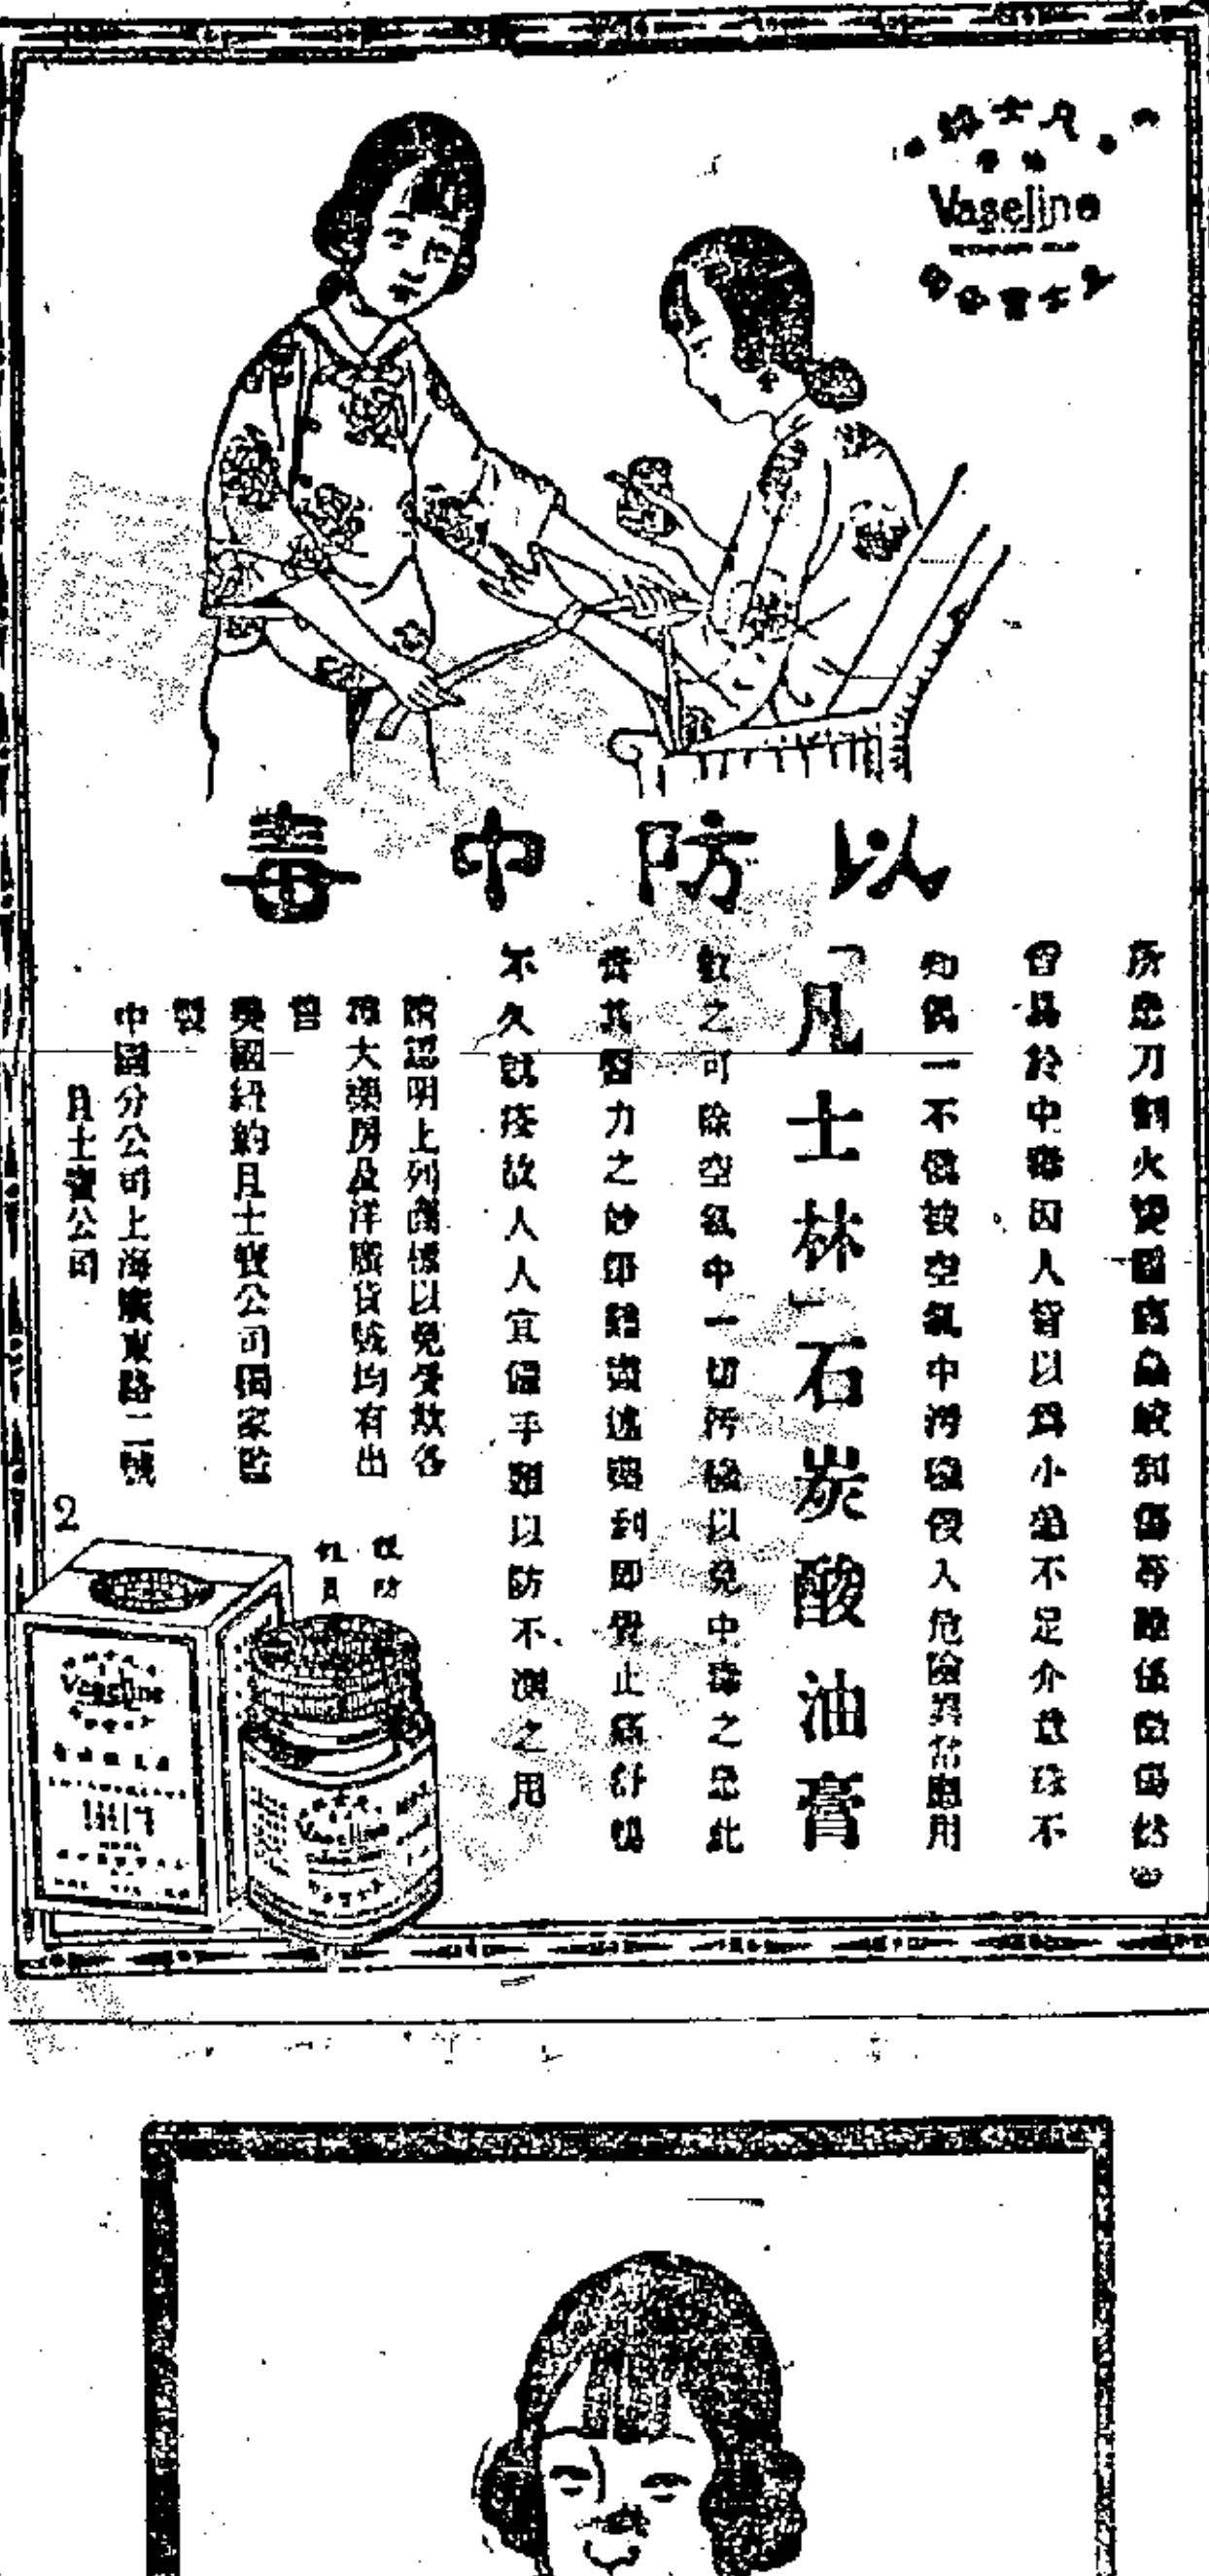 Vaseline
以防中毒
所患刀割火燙 刮傷等雖係微傷然
曾易於中毒因人皆以為小恙不足介意殊不
知偶一不慎被空氣中污穢侵入危險異常應用
「凡士林」石炭酸油膏
敷之可除空氣中一切污穢以免中毒之患此
膏其醫力之妙 到即覺止痛舒暢
不久就痊故人人宜備手頭以防不測之用
請認明上列商標以免受欺各
埠大藥房及洋廣貨號均有出
售
美國紐約且士寶公司獨家監
製
中國分公司上海廣東路二號
且士寶公司
2
Vaseline
Vaseline